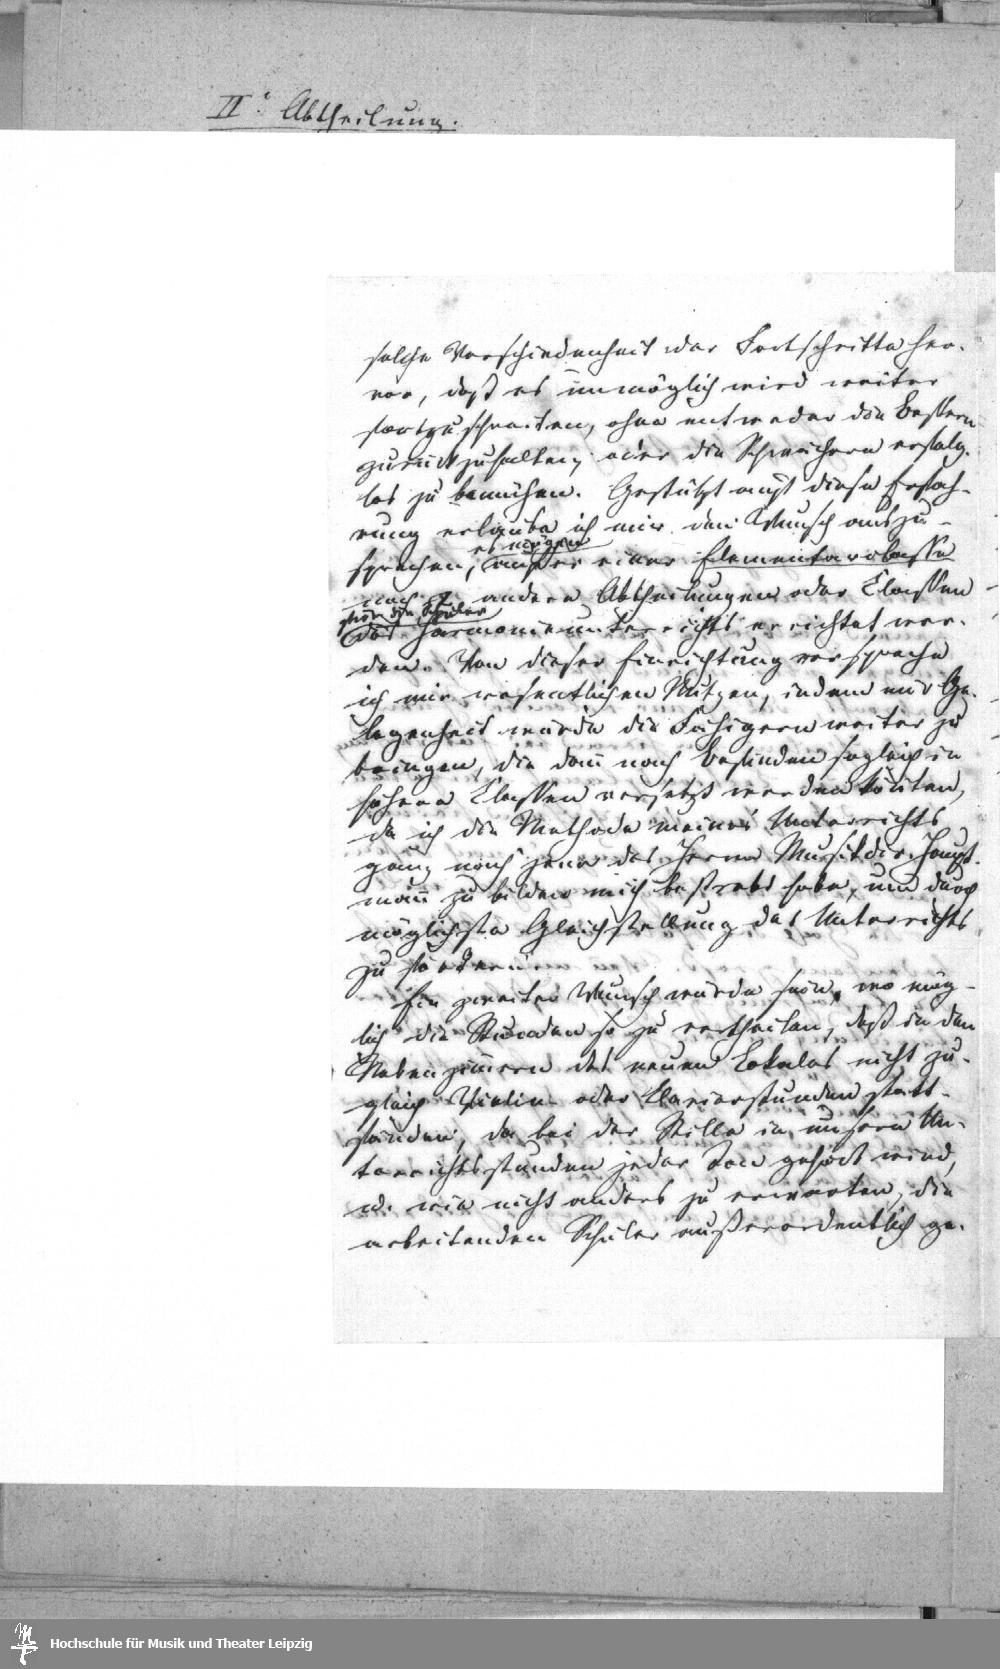 II.e Abtheilung.
solche Verschiedenheit der Fortschritte her-
vor, daß es unmöglich wird weiter
fortzuschreiten, ohne entweder die Bessern
zurückzuhalten, oder die Schwächern erfolg-
los zu bemühen. Gestützt auf diese Erfah-
rung erlaube ich mir den Wunsch auszu-
sprechen, es mögen außer einer Elementarclasse
noch 2 andere Abtheilungen oder Classen
für die Schüler
des Harmonieunterrichts errichtet wer-
den. Von dieser Einrichtung verspreche
ich mir wesentlichen Nutzen, indem mir Ge-
legenheit würde die Fähigern weiter zu
bringen, die dann nach Befinden sogleich in
höhere Classen versetzt werden könnten,
da ich die Methode meines Unterrichts
ganz nach jener des Herrn Musikdir. Haupt-
mann zu bilden mich bestrebt habe, um durch
möglichste Gleichstellung des Unterrichts
zu fördern.
Ein zweiter Wunsch würde sein, wo mög-
lich die Stunden so zu vertheilen, daß in den
Nebenzimmern des neuen Lokales nicht zu-
gleich Violin- oder Clavierstunden statt-
fänden, da bei der Stille in unsern Un-
terrichtsstunden jeder Ton gehört wird,
u. wie nicht anders zu erwarten, die
arbeitenden Schüler außerordentlich ge-
Hochschule für Musik und Theater Leipzig